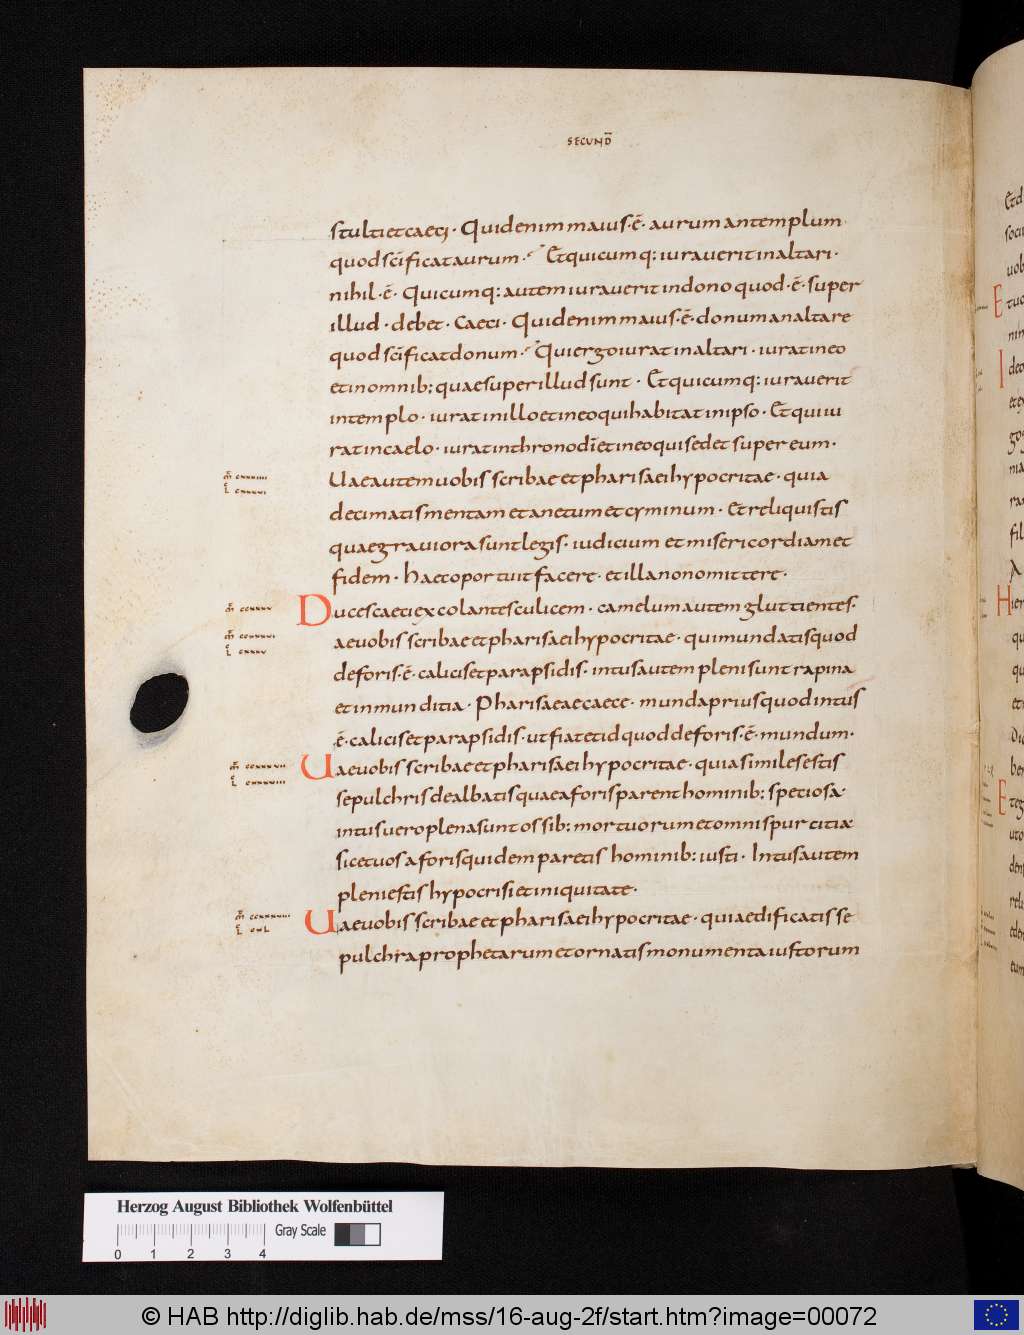 SECUND̄
stulti et caeci · Quid enim maius · ē · aurum an templum
quod scīficat aurum · Et quicumq: iuraverit in altari ·
nihil · ē · Quicumq: autem iuraverit in dono quod · ē · super
illud · debet · Caeci · Quid enim maius · ē · donum an altare
quod scīficat donum · Qui ergo iurat in altari · iurat in eo
et in omnib; quae super illud sunt · Et quicumq: iuraverit
in templo · iurat in illo et in eo qui habitat in ipso · Et qui iu
rat in caelo · iurat in throno dī et in eo qui sedet super eum ·
Uae autem uobis scribae et pharisaei hypocritae · quia
decimatis mentam et anetum et cyminum · Et reliquistis
quae graviora sunt legis · iudicium et misericordiam et
fidem · haec oportuit facere · et illa non omittere ·
Duces caeci excolantes culicem · camelum autem gluttientes ·
ae uobis scribae et pharisaei hypocritae · qui mundatis quod
de foris · ē · calicis et parapsidis · intus autem pleni sunt rapina
et inmunditia · Pharisaeae caece · munda prius quod intus
ē · calicis et parapsidis · ut fiat et id quod de foris · ē · mundum ·
Uae uobis scribae et pharisaei hypocritae · quia similes estis
sepulchris dealbatis quae a foris parent hominib; spetiosa ·
intus uero plena sunt ossib: mortuorum et omni spurcitia
sic et uos a foris quidem paretis hominib: iusti · Intus autem
pleni estis hypocrisi et iniquitate ·
Uae uobis scribae et pharisaei hypocritae · qui aedificatis se
pulchra prophetarum et ornatis monumenta iustorum
Herzog August Bibliothek Wolfenbüttel
Gray Scale
0 1 2 3 4
© HAB http://diglib.hab.de/mss/16-aug-2f/start.htm?image=00072